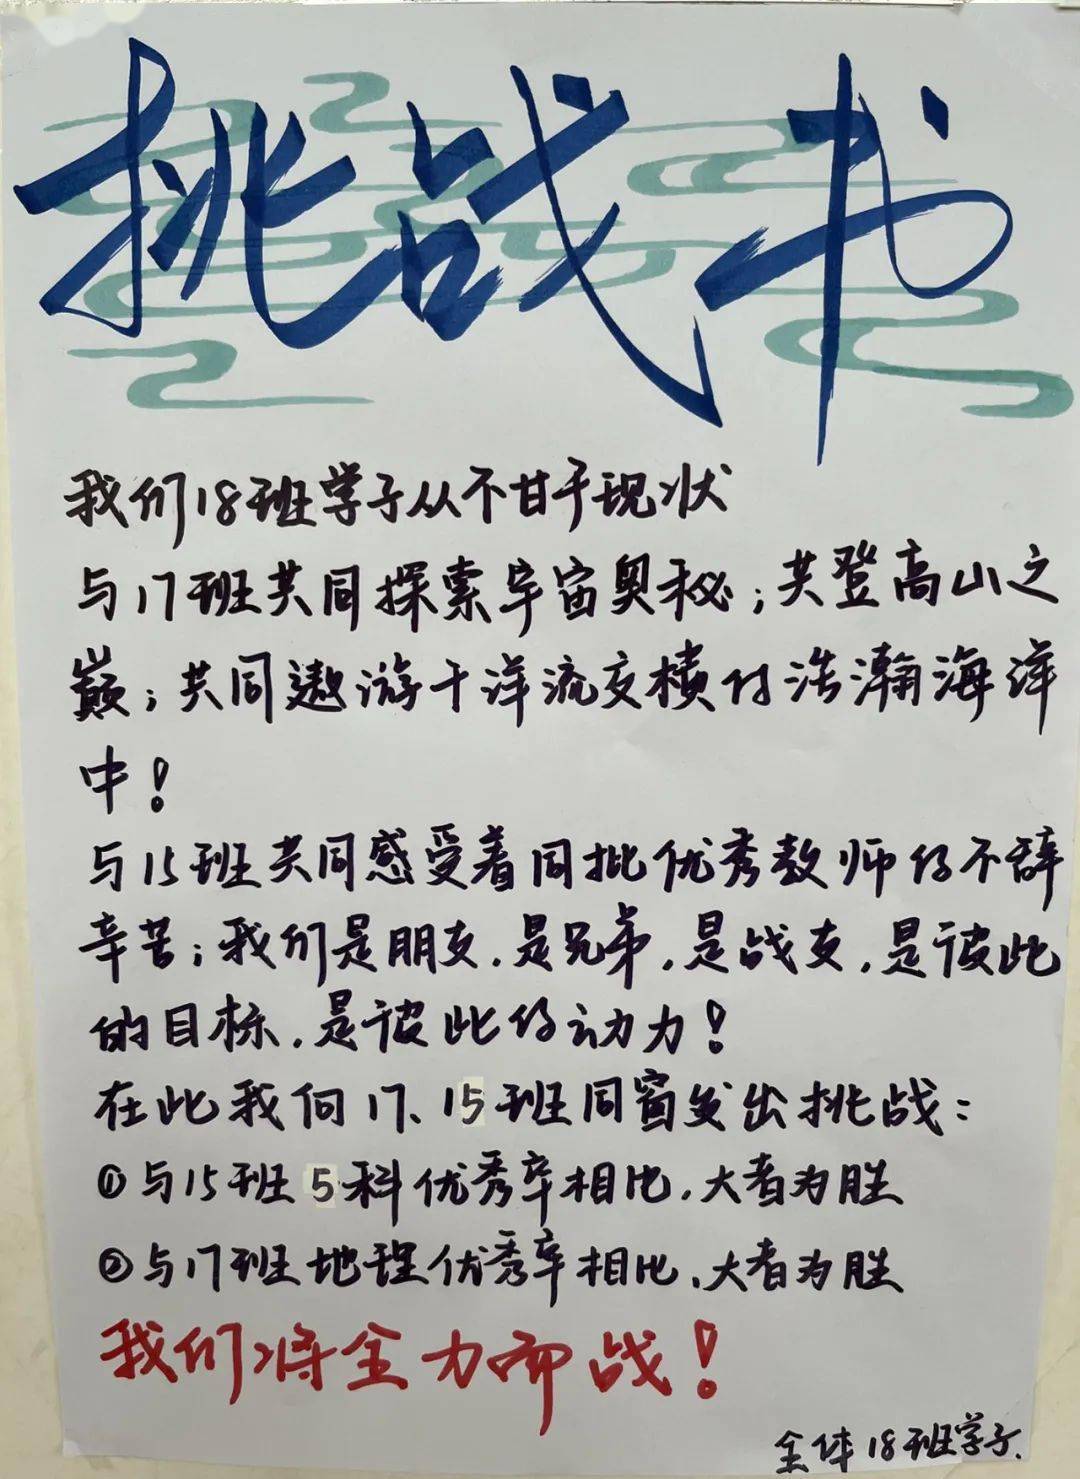 挑战书
我们18班学子从不甘于现状
与17班共同探索宇宙奥秘；共登高山之
巅；共同遨游于洋流交横的浩瀚海洋
中！
与15班共同感受着同批优秀教师的不辞
辛苦；我们是朋友，是兄弟，是战友，是彼此
的目标，是彼此的动力！
在此我向17、15班同窗发出挑战：
①与15班5科优秀率相比，大者为胜
②与17班地理优秀率相比，大者为胜
我们将全力而战！
全体18班学子.